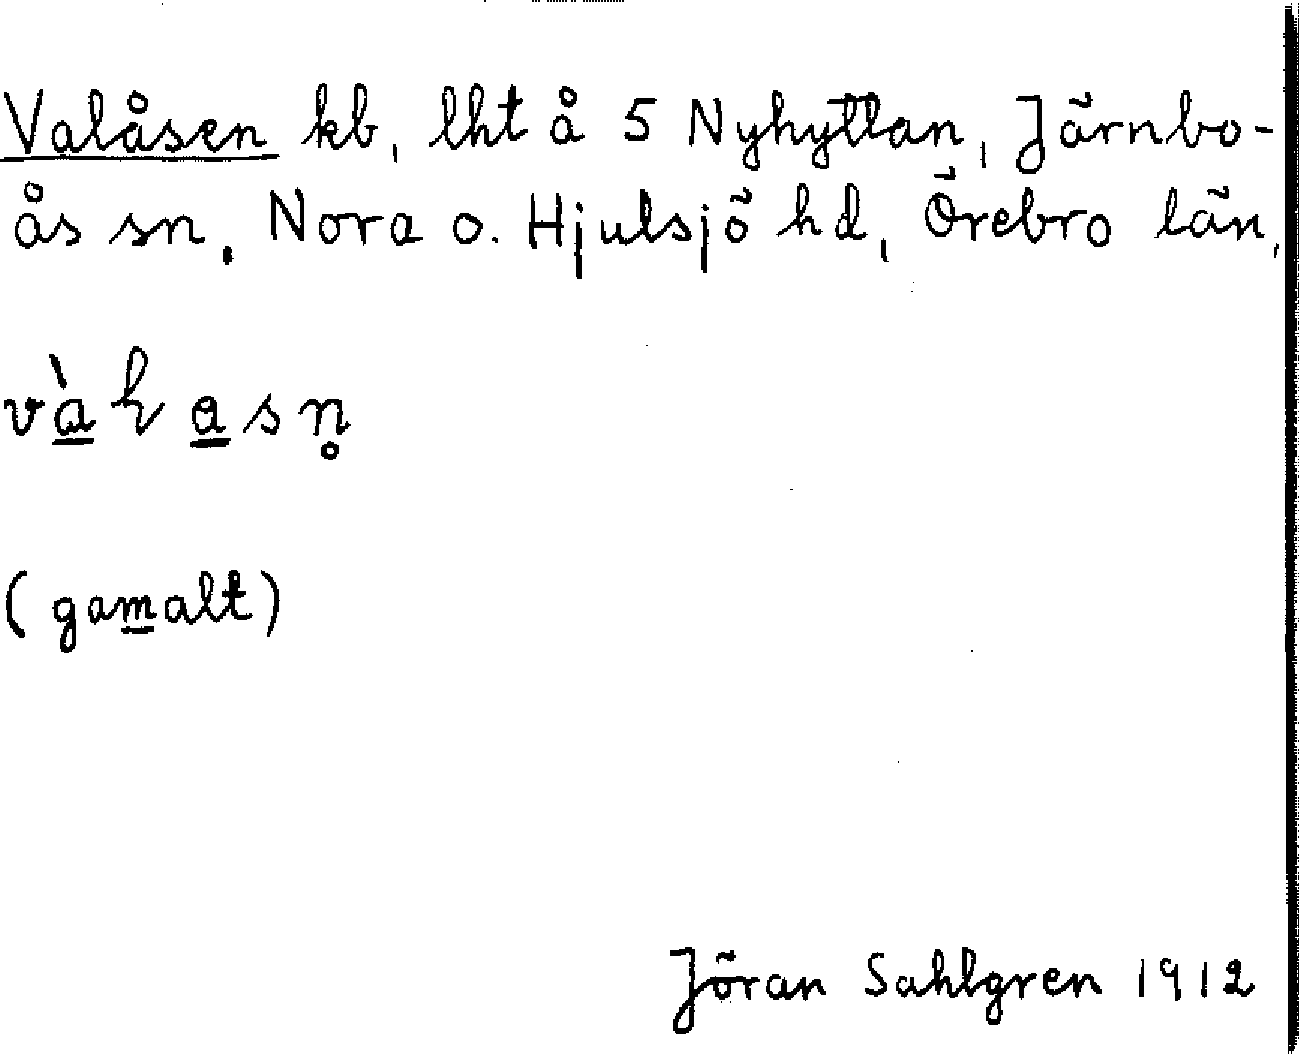 Valåsen kb, lht å 5 Nyhyttan, Järnbo-
ås sn. Nora o. Hjulsjö hd, Örebro län,
(gamalt)
Jöran Sahlgren 1912